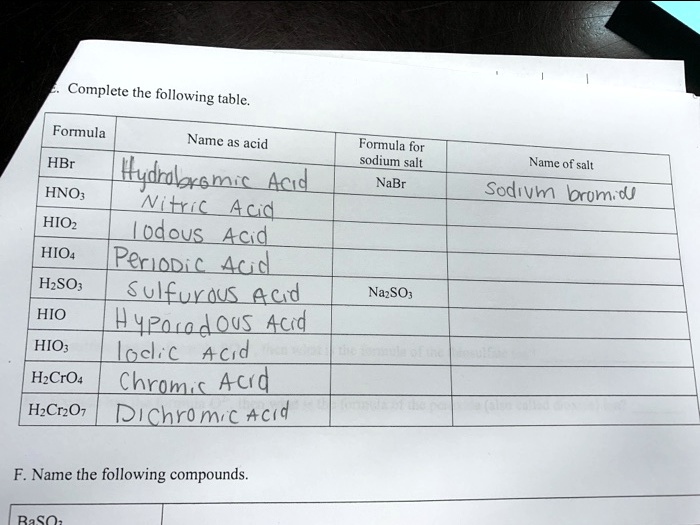 E. Complete the following table.
Formula Name as acid Formula for sodium salt Name of salt
HBr Hydrobromic Acid NaBr Sodium bromide
HNO₃ Nitric Acid
HIO₂ Iodous Acid
HIO₄ Periodic Acid
H₂SO₃ Sulfurous Acid Na₂SO₃
HIO Hypoiodous Acid
HIO₃ Iodic Acid
H₂CrO₄ Chromic Acid
H₂Cr₂O₇ Dichromic Acid
F. Name the following compounds.
BaSO₃